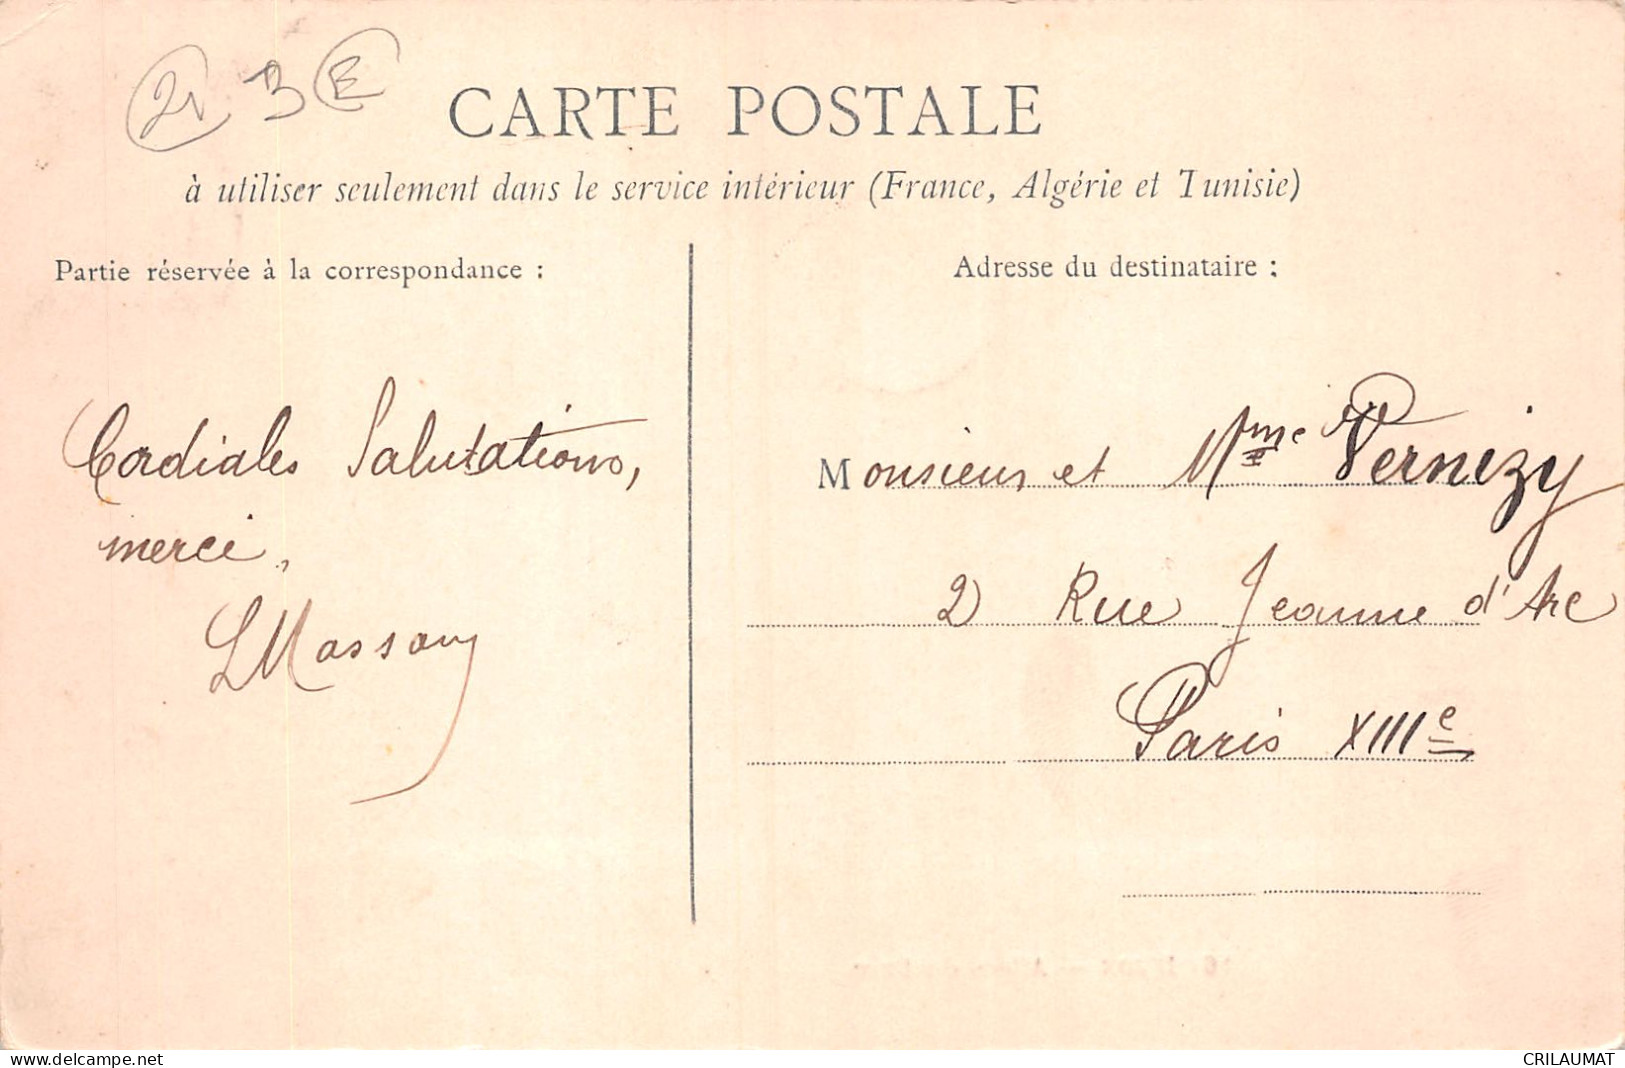 21 3 E
CARTE POSTALE
à utiliser seulement dans le service intérieur (France, Algérie et Tunisie)
Partie réservée à la correspondance :
Cordiales Salutations,
merci,
LMassony
Adresse du destinataire :
Monsieur et Mme Pernizy
2 Rue Jeanne d'Arc
Paris XIIIe
www.delcampe.net
CRILAUMAT